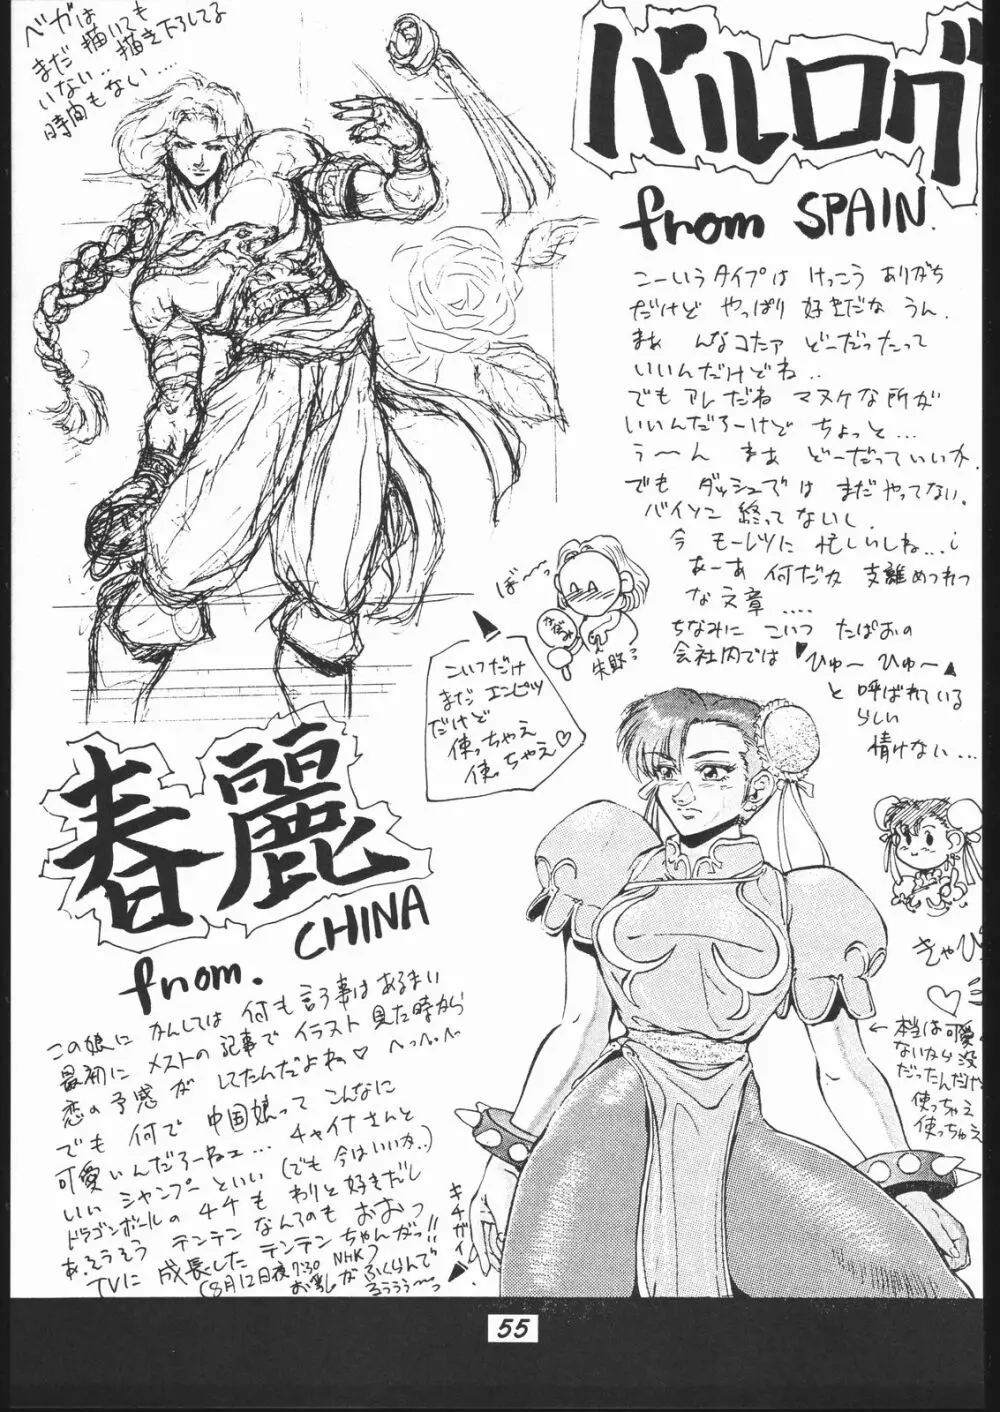 ベガは
まだ描いても
いない‥描き下ろしてる
時間もない‥‥
バルログ
from SPAIN.
こーいうタイプは けっこう ありがち
だけど やっぱり 好きだな うん.
まぁ んなコたァ どーだったって
いいんだけどね‥
でも アレだね マヌケな所が
いいんだろーけど ちょっと…
う〜ん まぁ どーだっていいか
でも ダッシュでは まだやってない.
バイソン 終ってないし.
今 モーレツに 忙しいしね…
あーあ 何だか 支離めつれつ
な文章‥‥
ちなみに こいつ たぱおの
会社内では "ひゅ〜 ひゅ〜"
と 呼ばれている
らしい
情けない…
ぼ〜〜っ
失敗
こいつだけ
まだ エンピツ
だけど
使っちゃえ
使っちゃえ♡
春麗
from. CHINA
この娘に かんしては 何も 言う事は あるまい
最初に メストの 記事で イラスト 見た時から
恋の予感が してたんだよね♡ へっへっへ
でも 何で 中国娘って こんなに
可愛いんだろーねェ… チャイナさんと
いい シャンプーといい (でも 今はいいか‥)
ドラゴンボールの チチも わりと 好きだし
あ,そうそう テンテン なんるのも おおっ
TVに 成長した テンテン ちゃんがっ!!
(8月12日夜7:30 NHK)
お乳が ふくらんで
るぅぅぅ〜っ
キチガイ
きゃぴ
♡
← 本当は可愛く
ないから没
だったんだけど
使っちゃえ
使っちゃえ
55